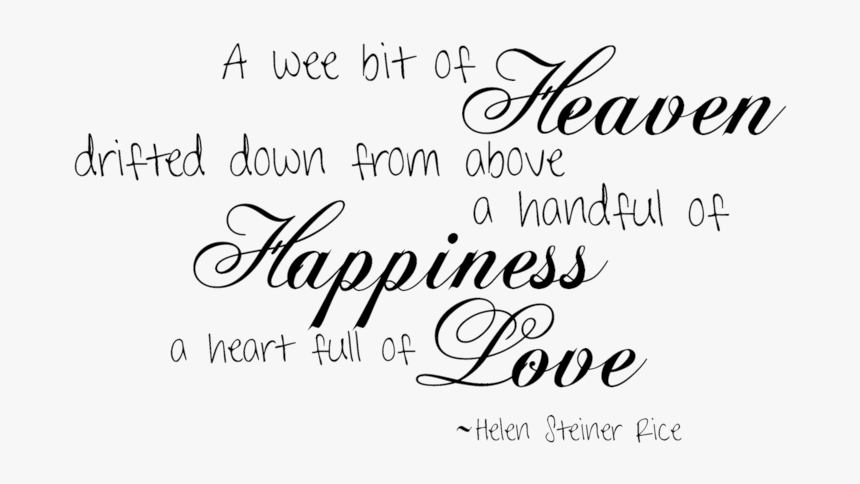 A wee bit of Heaven
drifted down from above
a handful of
Happiness
a heart full of Love
~Helen Steiner Rice